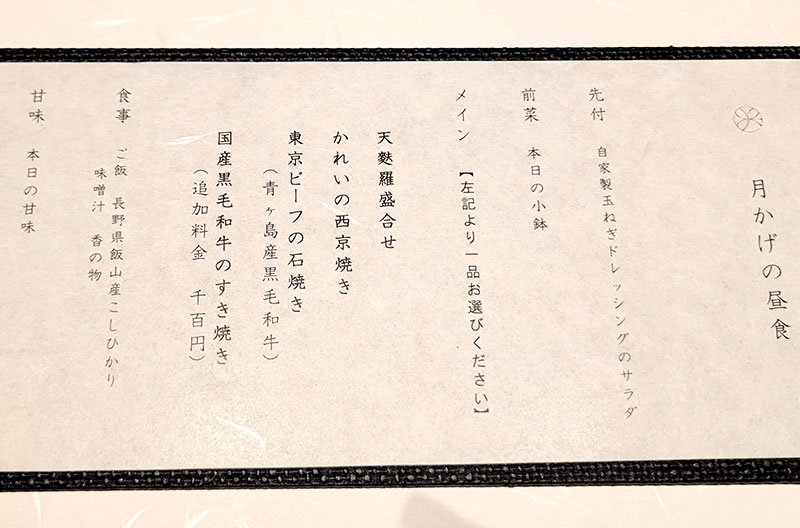 月かげの昼食
先付 自家製玉ねぎドレッシングのサラダ
前菜 本日の小鉢
メイン 【左記より一品お選びください】
天麩羅盛合せ
かれいの西京焼き
東京ビーフの石焼き
（青ヶ島産黒毛和牛）
国産黒毛和牛のすき焼き
（追加料金 千百円）
食事 ご飯 長野県飯山産こしひかり
味噌汁 香の物
甘味 本日の甘味